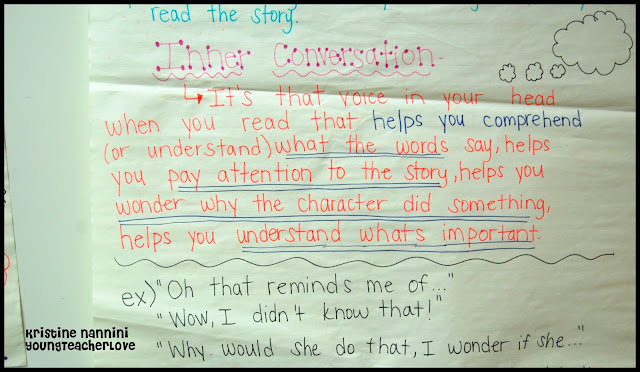 read the story.
Inner Conversation-
It's that voice in your head
when you read that helps you comprehend
(or understand) what the words say, helps
you pay attention to the story, helps you
wonder why the character did something,
helps you understand whats important.
ex) "Oh that reminds me of..."
"Wow, I didn't know that!"
"Why would she do that, I wonder if she..."
Kristine Nannini
Youngteacherlove